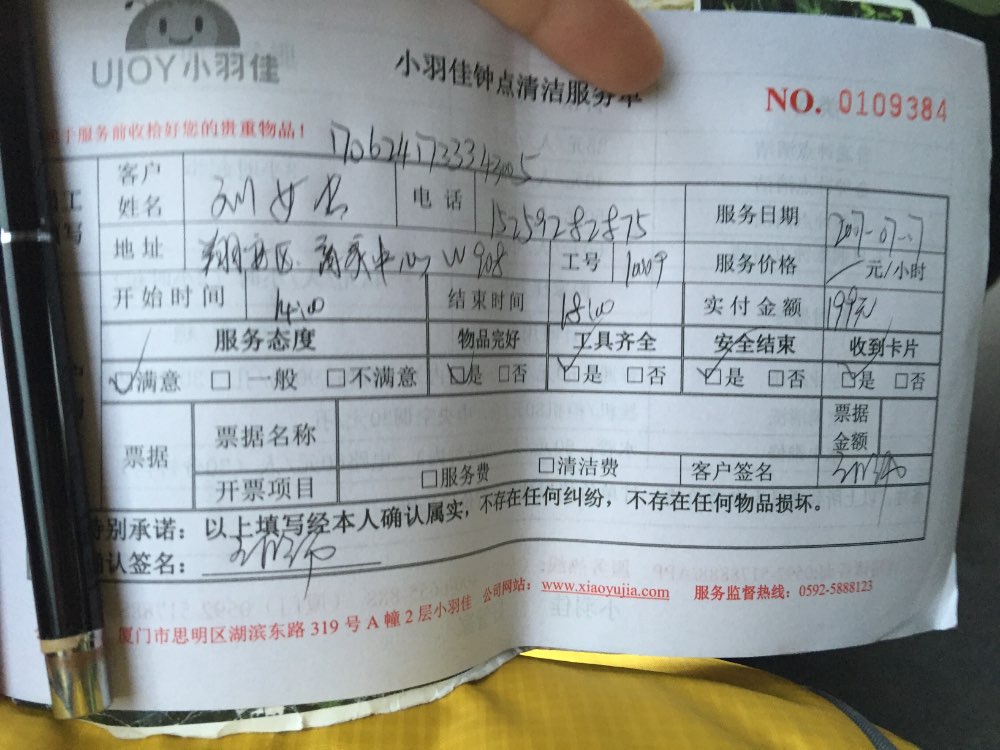 UJOY小羽佳
小羽佳钟点清洁服务单
NO. 0109384
于服务前收检好您的贵重物品！
工
客户姓名 刘女士 电话 15259282875 服务日期
地址 翔安区 商务中心 W908 工号 服务价格 元/小时
开始时间 14:00 结束时间 18:00 实付金额 199元
服务态度 物品完好 工具齐全 安全结束 收到卡片
满意 □ 一般 □不满意 是 □否 是 □否 是 □否 是 □否
票据 票据名称 票据金额
开票项目 □服务费 □清洁费 客户签名
特别承诺：以上填写经本人确认属实，不存在任何纠纷，不存在任何物品损坏。
确认签名：
厦门市思明区湖滨东路 319 号 A 幢 2 层小羽佳 公司网站：www.xiaoyujia.com 服务监督热线：0592-5888123